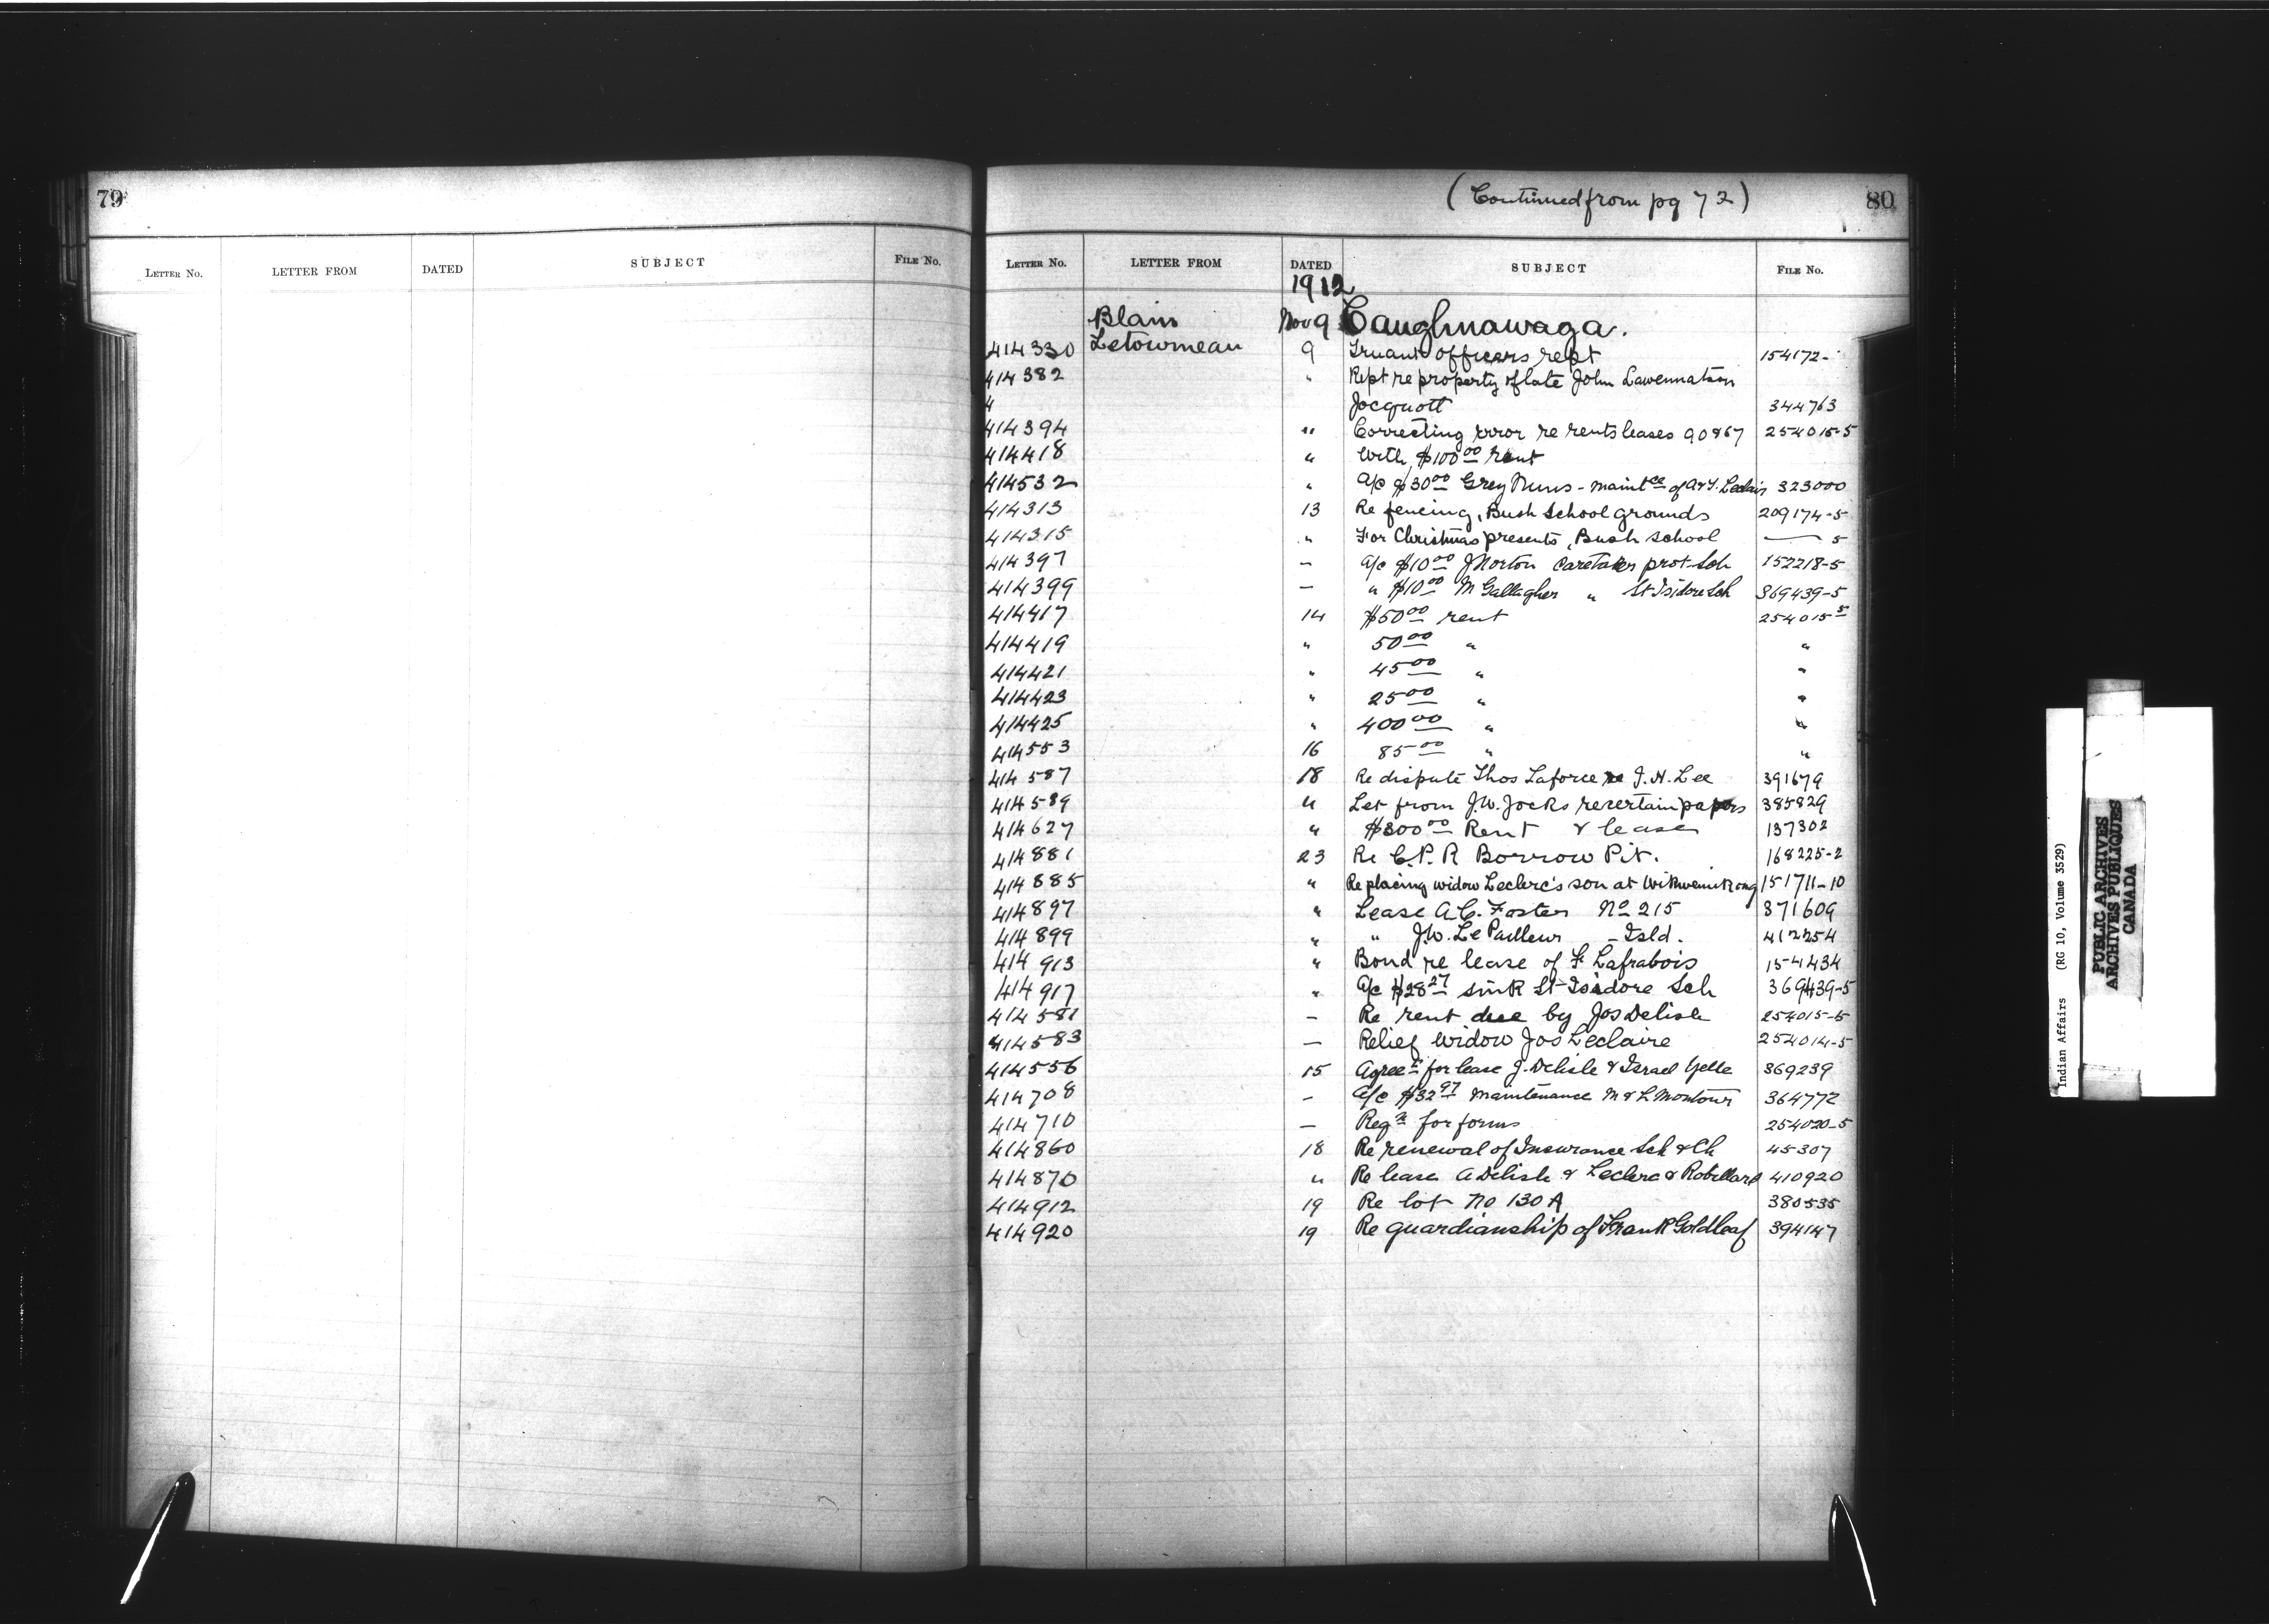 79
LETTER NO. LETTER FROM DATED SUBJECT FILE NO.
(Continued from pg 72) 80
LETTER NO. LETTER FROM DATED SUBJECT FILE NO.
1912
Blain Nov 9 Caughnawaga.
414330 Letourneau 9 Truant officers rept 154172-
414382 " Rept re property of late John Lawennatson
4 Jocquott 344763
414394 " Correcting error re rents leases 90867 254015-5
414418 " With $100.00 rent
414532 " A/c $30.00 Grey Nuns - maintce of A & T. Leclair 323000
414313 13 Re fencing, Bush School grounds 209174-5
414315 " For Christmas presents, Bush School — 5
414397 — A/c $10.00 J Norton Caretaker prot. Sch 152218-5
414399 — " $10.00 M Gallagher " St Isidore Sch 369439-5
414417 14 $50.00 rent 254015 5
414419 " 50.00 " "
414421 " 45.00 " "
414423 " 25.00 " "
414425 " 400.00 " "
414553 16 85.00 " "
414587 18 Re dispute Thos Laforce re J. H. Lee 391679
414589 " Let from J.W. Jocks re certain papers 385829
414627 " $300.00 Rent & lease 137302
414881 23 Re C.P.R Borrow Pit. 168225-2
414885 " Re placing widow Leclerc's son at Wikwemikong 151711-10
414897 " Lease A.C. Foster No 215 371609
414899 " " J.W. Le Pailleur - Isld. 412254
414913 " Bond re lease of F. Lafrabois 154434
414917 " A/c $28.27 sink St Isidore Sch 369439-5
414581 — Re rent due by Jos Delisle 254015-5
414583 — Relief Widow Jos Leclaire 254014-5
414556 15 Agreet for lease J. Delisle & Israel Yelle 369239
414708 — A/c $32.97 maintenance M & L Montour 364772
414710 — Reqn for forms 254020-5
414860 18 Re renewal of Insurance Sch & Ch 45307
414870 " Re lease A Delisle & Leclerc & Robillard 410920
414912 19 Re lot No 130 A 380535
414920 19 Re guardianship of Frank Goldleaf 394147
Indian Affairs (RG 10, Volume 3529)
PUBLIC ARCHIVES
ARCHIVES PUBLIQUES
CANADA